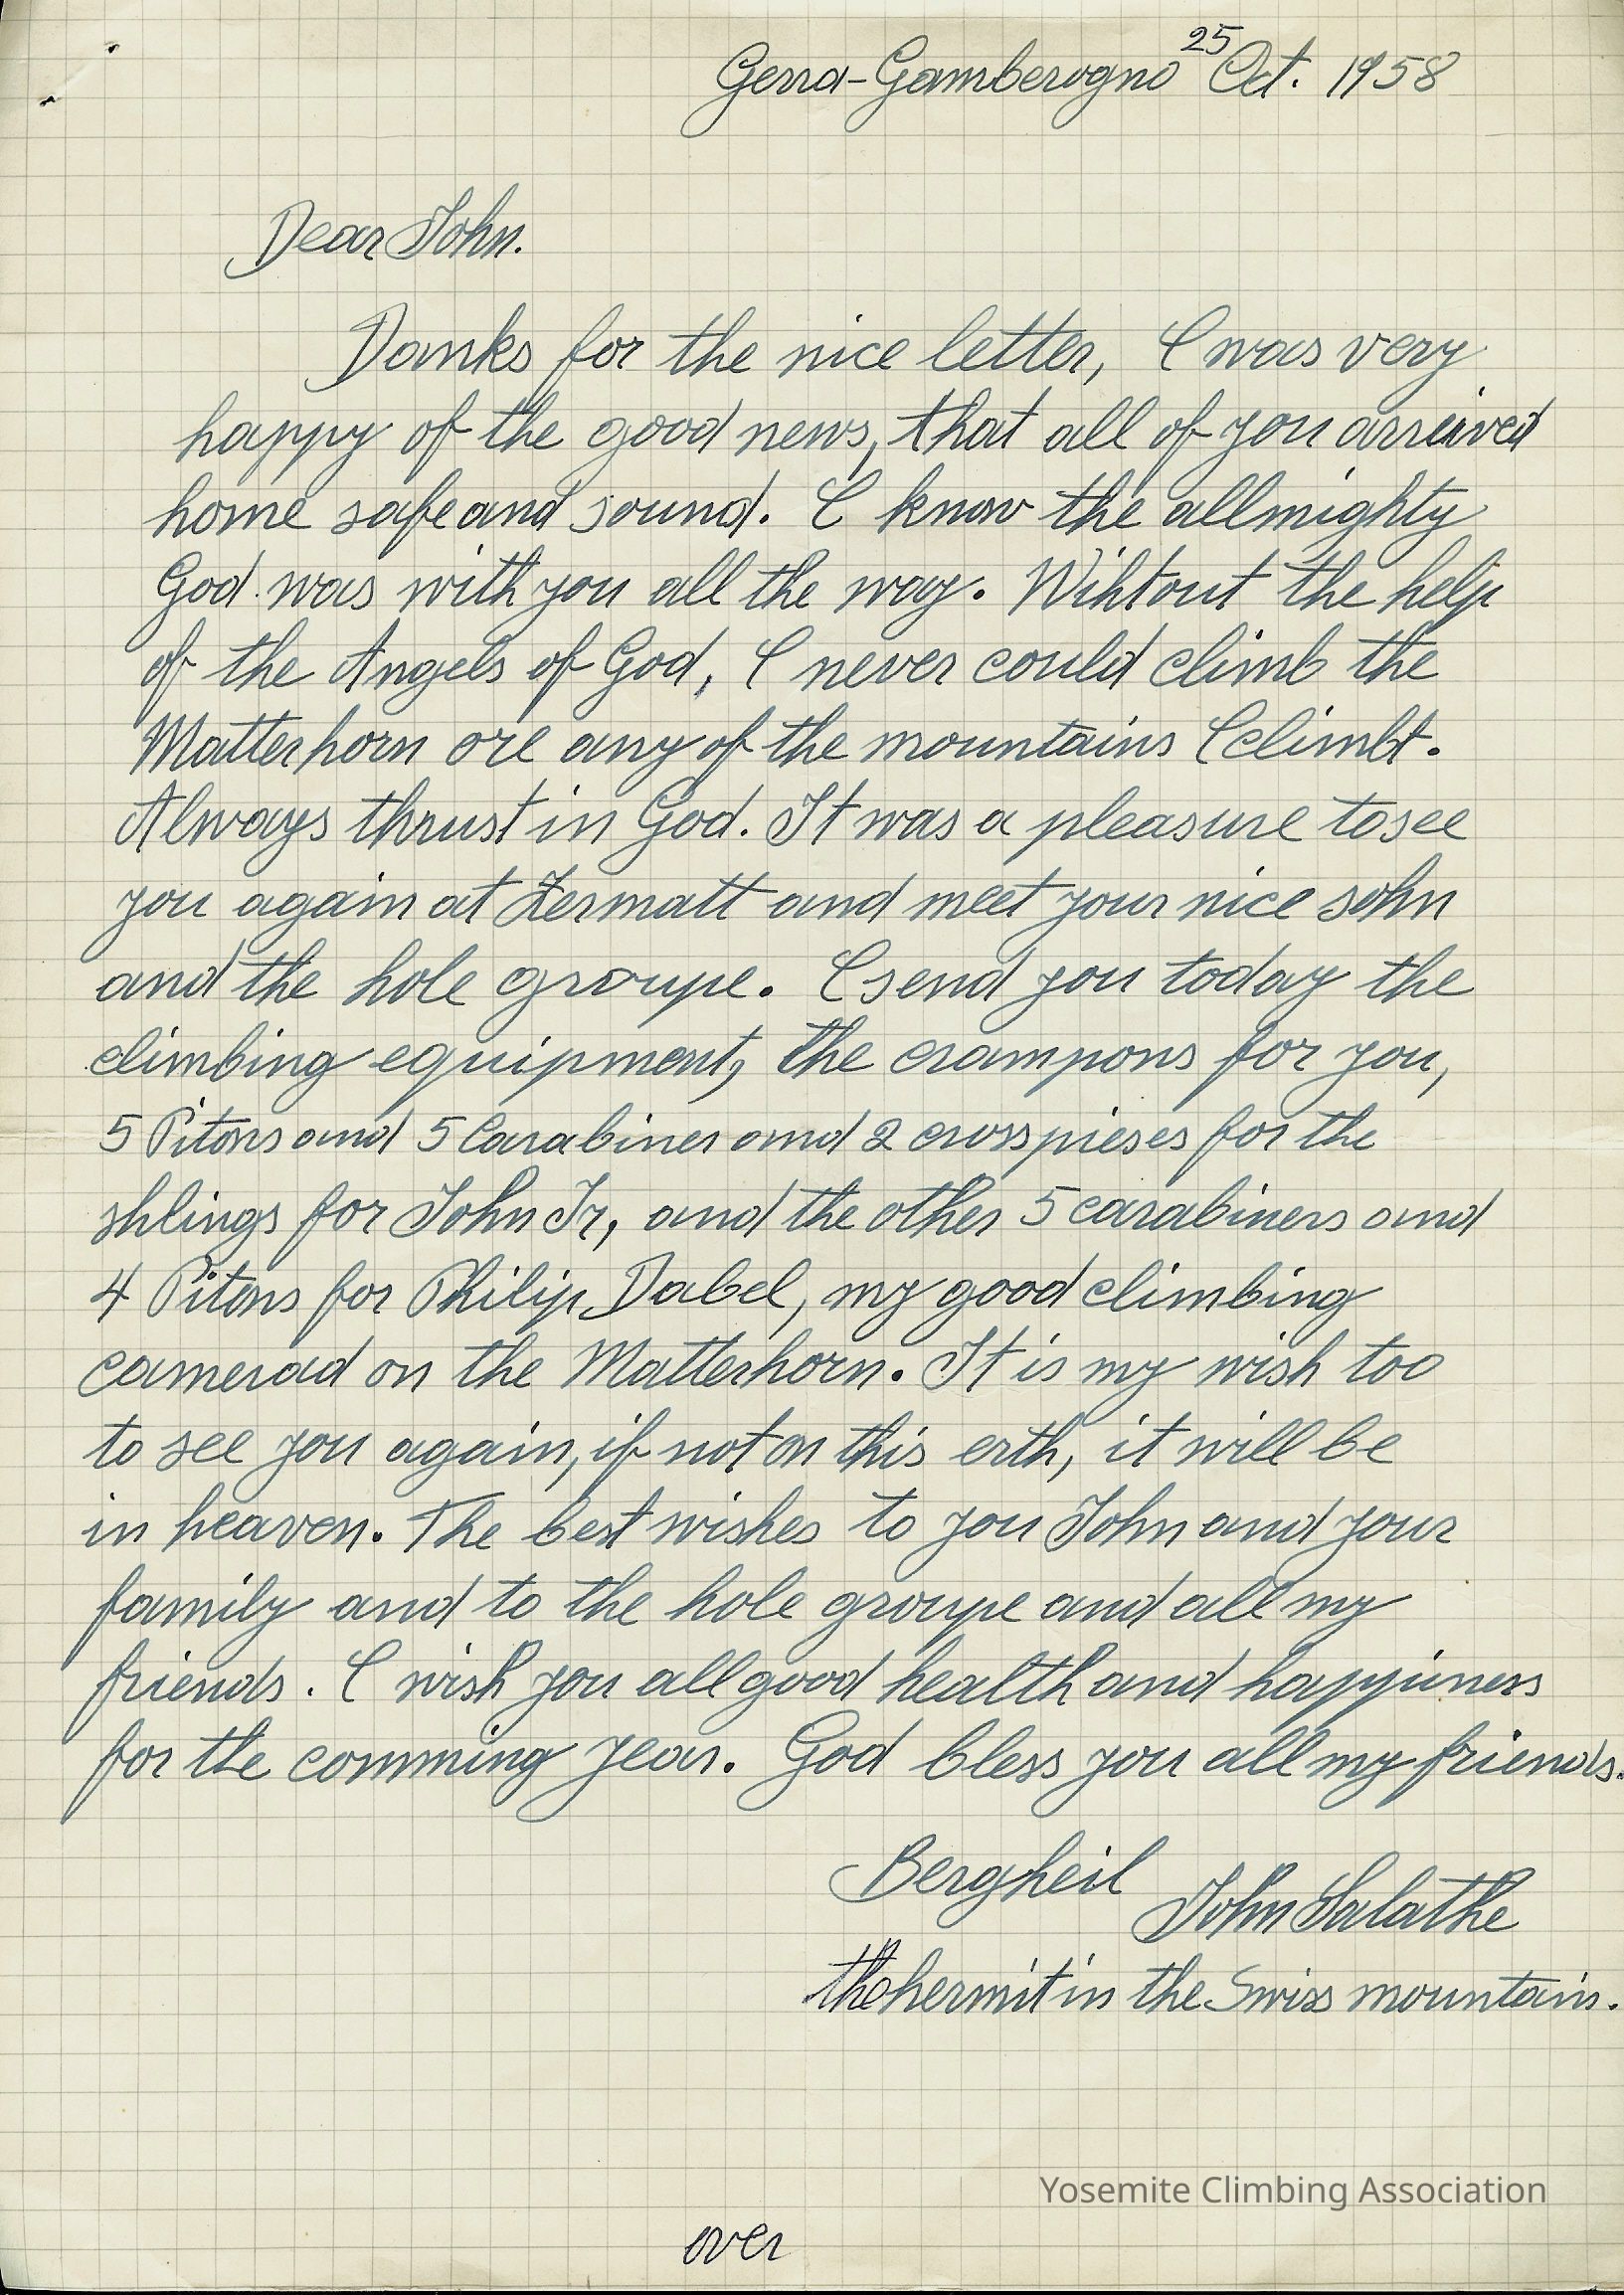 Gerra-Gamberogno 25 Oct. 1958
Dear John.
Danks for the nice letter, I was very
happy of the good news, that all of you arreived
home safe and sound. I know the allmighty
God was with you all the way. Wihtout the help
of the Angels of God, I never could climb the
Matterhorn ore any of the mountains I climbt.
Always thrust in God. It was a pleasure to see
you again at Zermatt and meet your nice sohn
and the hole groupe. I send you today the
climbing equipment, the crampons for you,
5 Pitons and 5 Carabiner and 2 cross pieses for the
shlings for John Jr, and the other 5 carabiners and
4 Pitons for Philip Dabel, my good climbing
camerad on the Matterhorn. It is my wish too
to see you again, if not on this erth, it will be
in heaven. The best wishes to you John and your
family and to the hole groupe and all my
friends. I wish you all good health and happiness
for the comming year. God bless you all my friends.
Bergheil John Salathe
the hermit in the Swiss mountain.
Yosemite Climbing Association
over